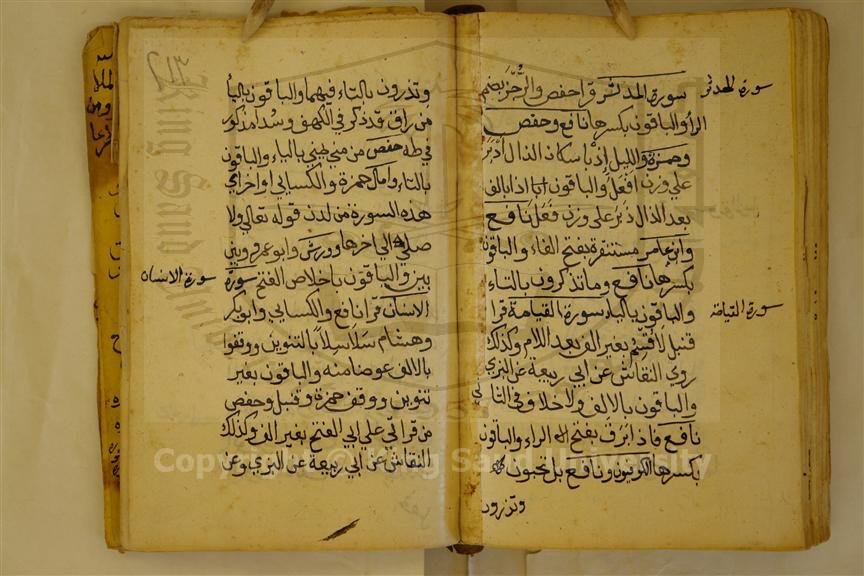 سورة المدثر
سورة المدثر قرا حفص والرُّجْزَ بضم
الرا والباقون بكسرها نافع وحفص
وحمزة والليل إذْ باسكان الذال أدْبَرَ
علي وزن افعل والباقون اذا بالف
بعد الذال دَبَرَ علي وزن فَعَلَ نافع
وابن عامر مستنفرة بفتح الفاء والباقون
بكسرها نافع وما تذكرون بالتاء
والباقون بالياء سورة القيامة قرا
سورة القيامة
قنبل لاقسم بغير الف بعد اللام وكذلك
روي النقاش عن ابي ربيعة عن البزي
والباقون بالالف ولا خلاف في الثاني
نافع فاذا بَرَقَ بفتح الراء والباقون
بكسرها الكوفيون ونافع بل تحبون
وتذرون
٢١٣
وتذرون بالتاء فيهما والباقون بالياء
من راق قد ذكر في الكهف وسدا مذكور
في طه حفص من مني يمني بالياء والباقون
بالتاء وامال حمزة والكسائي اواخر اي
هذه السورة من لدن قوله تعالي ولا
صلي الي اخرها وورش وابو عمرو بين
بين والباقون باخلاص الفتح سورة
سورة الانسان
الانسان قرا نافع والكسائي وابو بكر
وهشام سَلَاسِلاً بالتنوين ووقفوا
بالالف عوضا منه والباقون بغير
تنوين ووقف حمزة وقنبل وحفص
من قراتي علي ابي الفتح بغير الف وكذلك
النقاش عن ابي ربيعة عن البزي وعن
Copyright © King Saud University